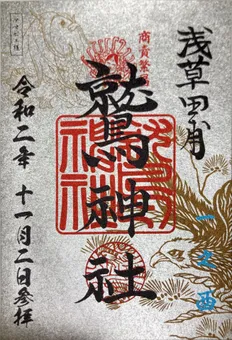 浅草田甫
一之酉
商売繁昌
鷲神社
令和二年 十一月二日参拝